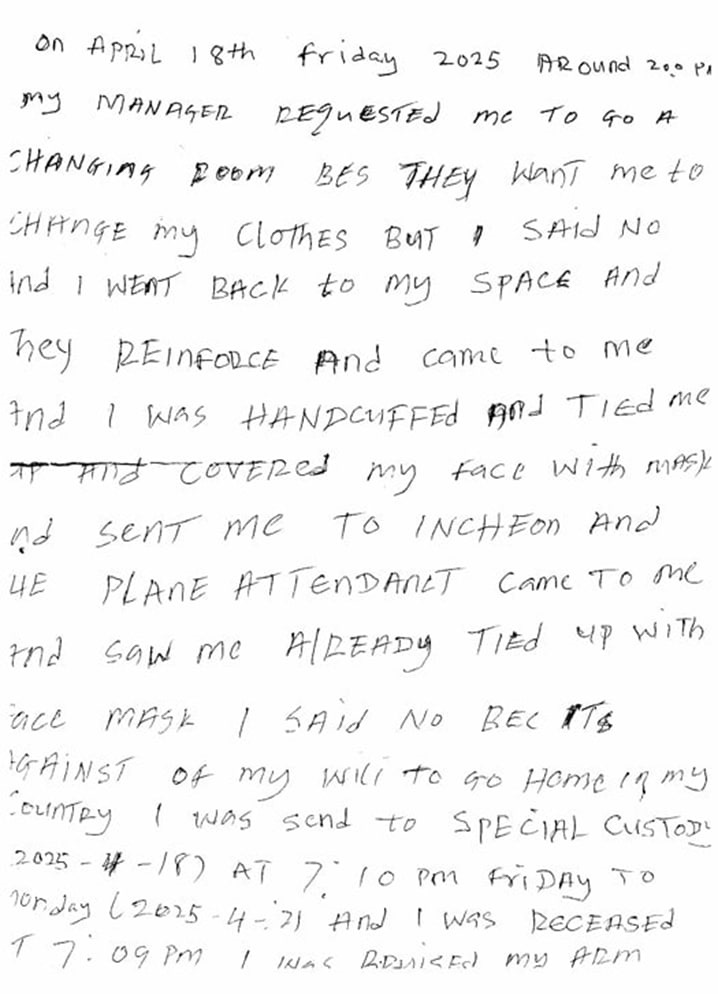 On APRIL 18th friday 2025 AROund 2:00 P
my MANAGER REQUESTEd me TO GO A
CHANGING ROOM BES THEY WanT me to
CHANGE my CloTHES BUT I SAId NO
And I WENT BACK to my SPACE And
They REINFORCE And came to me
And I was HANDCUFFEd And TIEd me
COVERed my face with MASK
nd senT me TO INCHEon And
HE PLANE ATTENDANT came TO me
And saw me AlREADY TIEd up with
face MASK I SAId No BEC ITS
AGAINST of my will to go Home in my
COUNTRY I was send to SPECIAL CUSTODY
2025-4-18) AT 7:10 pm FRIDAY TO
Monday (2025-4-21 And I was RECEASEd
T 7:09 pm I was BRUISED my ARM